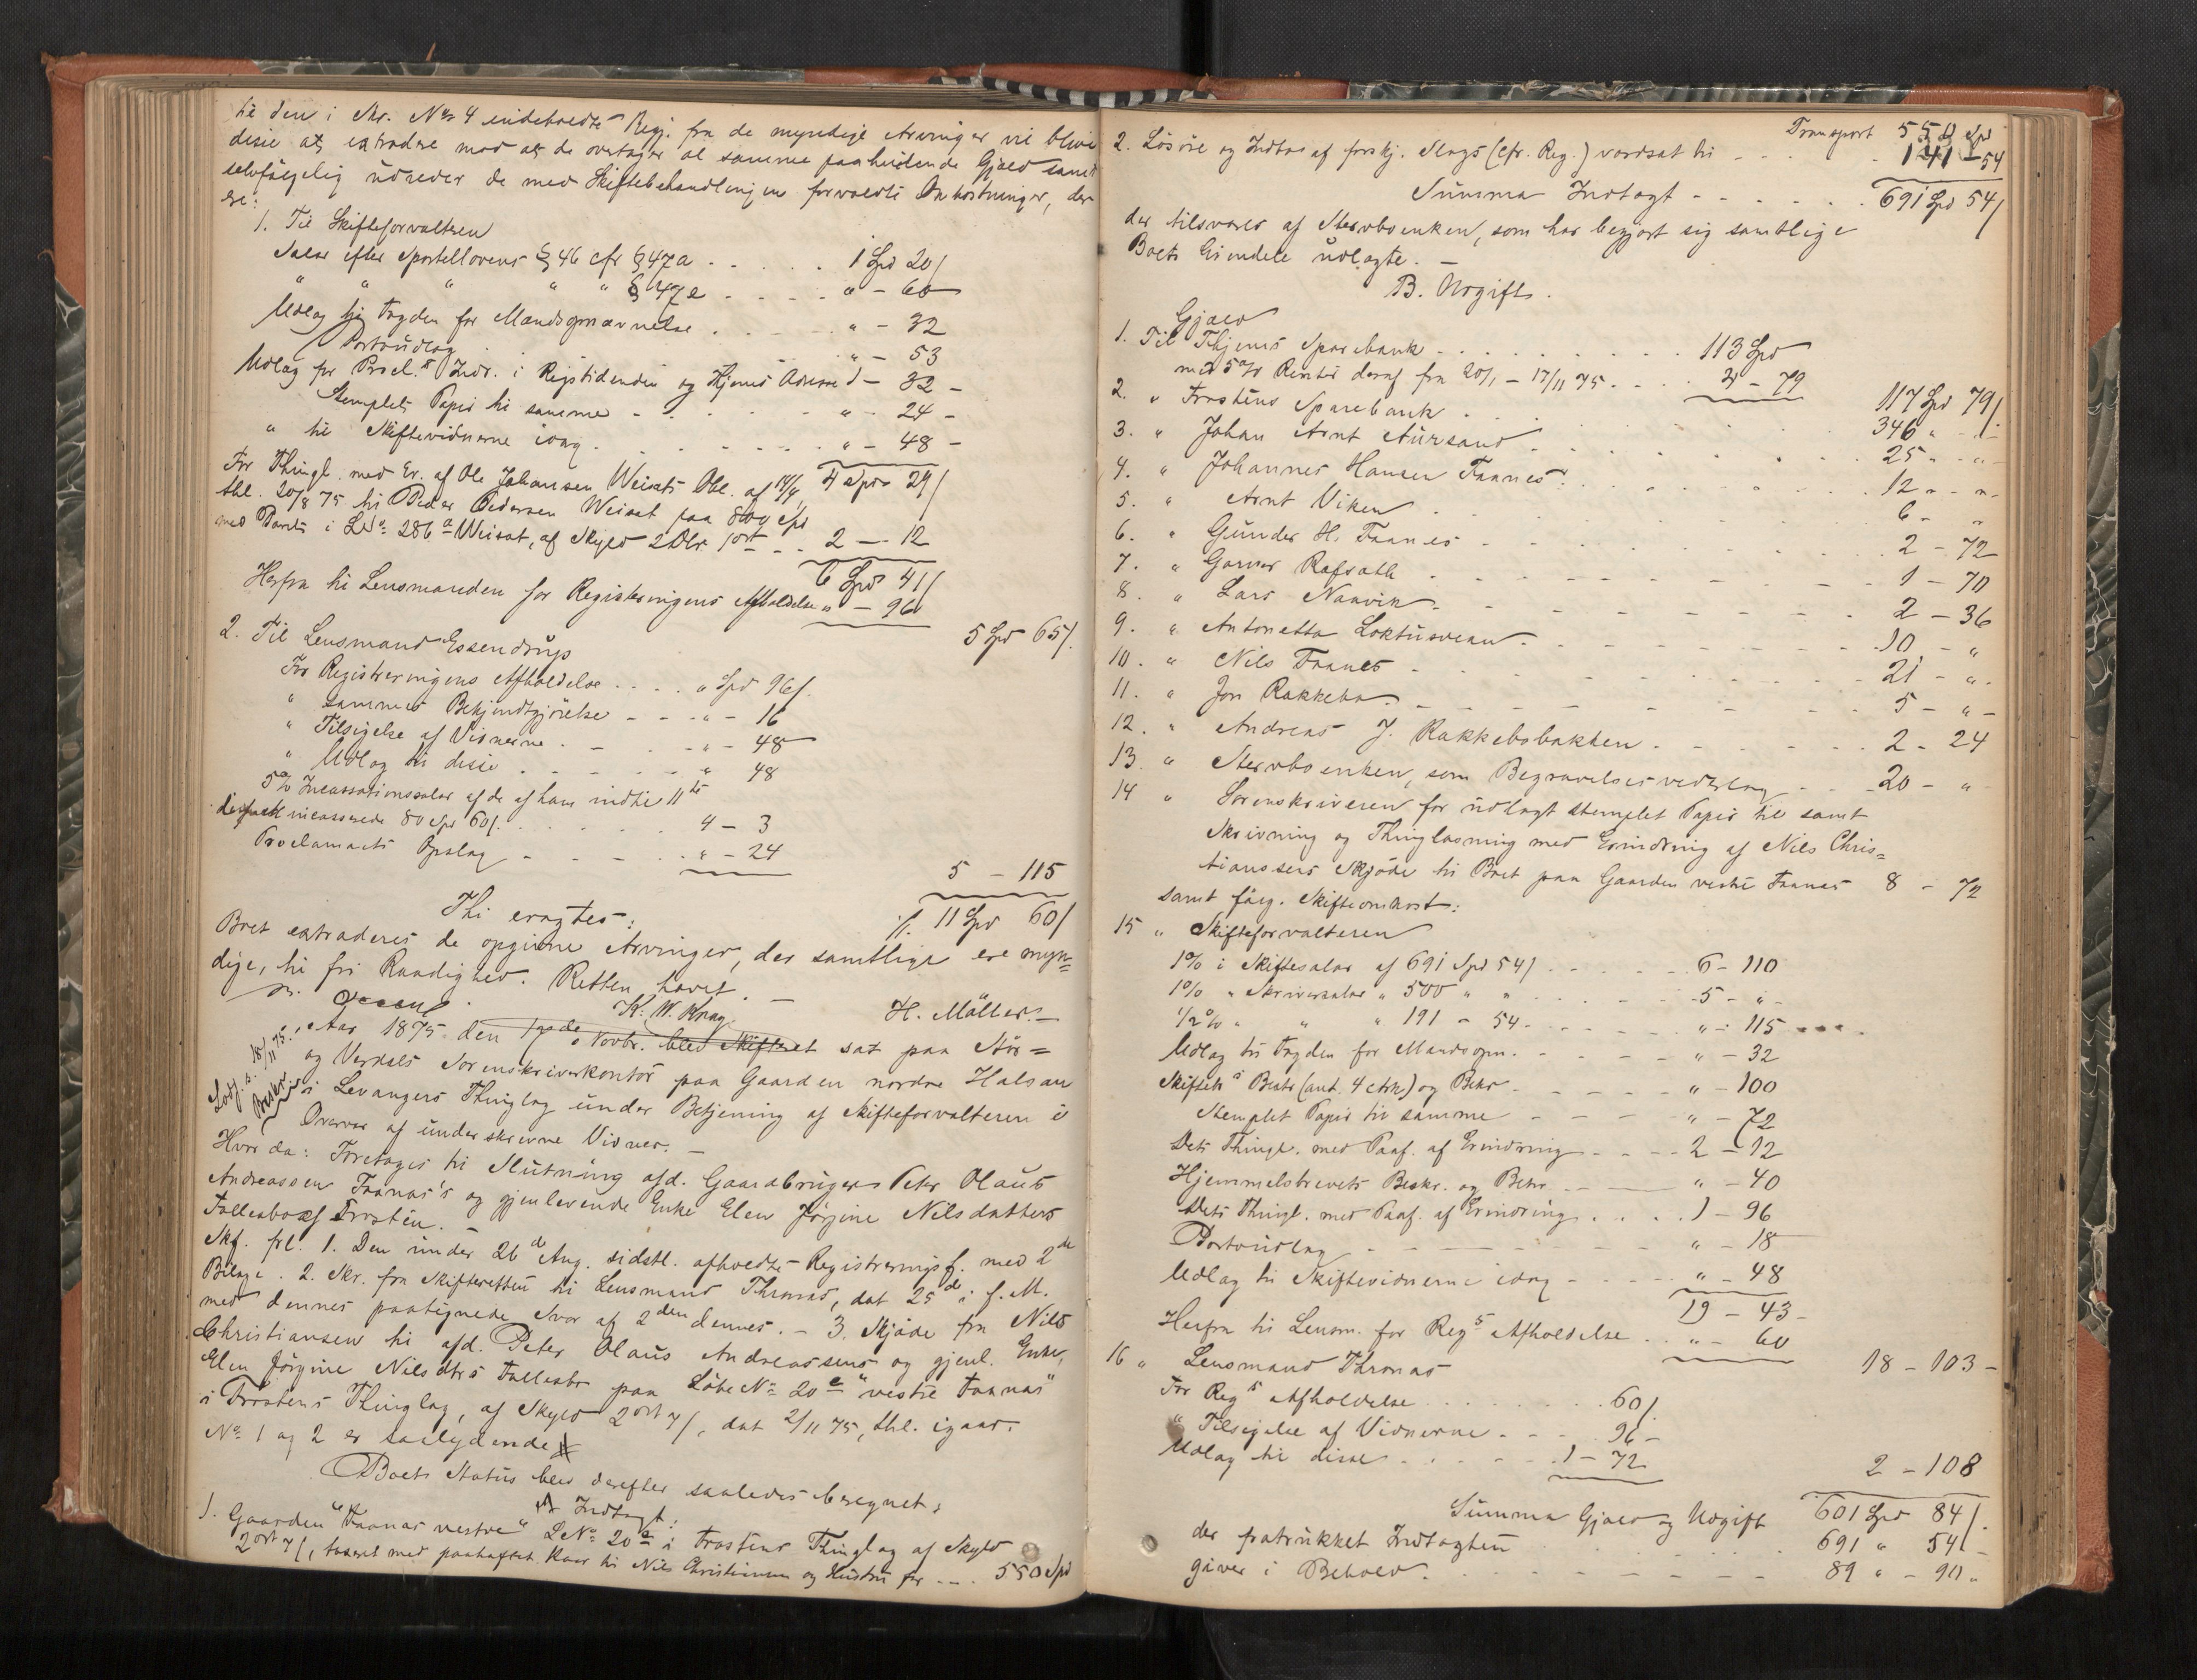 til den i Skr. No 4 indeholdte Begj. fra de myndige Arvinger vil blive
disse at extradere mod at de overtager al samme paahvilende Gjæld samt
selvfølgelig udreder de med Skiftebehandlingen forvoldte Omkostninger, der
ere:
1. Til Skifteforvalteren
Salar efter Sportellovens § 46 cfr § 47 a . . . . . 1 Spd 20 ß
" " " " " § 47 e . . . . " - 60
Udlag til Fogden for Mandsopnævnelse . . . " - 32
Portoudlag . . . " - 53
Udlag for Procl.s Indr. i Rigstidenden og Thjems Adresse 1 - 32 -
Stemplet Papir til samme - . . . " - 24 -
" til Skiftevidnerne idag . . . . " - 48 -
4 Spd 29 ß
For Thingl. med Er. af Ole Johansen Weisets Obl. af 14/4,
thl. 20/8 75 til Peder Pedersen Weiset paa 800 Spd
med Pant i LNo 286 a Weiset, af Skyld 2 Dlr. 1 ort - . . 2 - 12
6 Spd 41 ß
Herfra til Lensmanden for Registreringens Afholdelse " - 96
5 Spd 65 ß.
2. Til Lensmand Essendrop
For Registreringens Afholdelse . . . . " Spd 96 ß.
" sammes Bekjendtgjørelse - - . " - 16
" Tilsigelse af Vidnerne . - . - " - 48
" Udlag til disse . . - - - " 48
5 % Incassationssalar af de af ham indtil 11te
ds. incasserede 80 Spd 60 ß. . . . . . 4 - 3
Proclamaets Opslag - - - - . " - 24
5 - 115
Thi eragtes:
./. 11 Spd 60 ß
Boet extraderes de opgivne Arvinger, der samtlige ere myn=
dige, til fri Raadighed. Retten hævet. -
K. W. Krag.
H. Möller. -
Aar 1875 den 17de Novbr. blev Skifteret sat paa Stør=
og Verdals Sorenskriverkontor paa Gaarden nordre Halsan
i Levangers Thinglag under Betjening af Skifteforvalteren i
Overvær af underskrevne Vidner. -
Hvor da: Foretages til Slutning afd. Gaardbruger Peter Olaus
Andreassen Faanæs's og gjenlevende Enke Elen Jørgine Nilsdatters
Fællesbo af Frosten. -
Skf. frl. 1. Den under 26d Aug. sidstl. afholdte Registreringsf. med 2de
Bilage. 2. Skr. fra Skifteretten til Lensmand Thronæs, dat 25d i f. M.
med dennes paategnede Svar af 2den dennes. - 3. Skjøde fra Nils
Christiansen til afd. Peter Olaus Andreassens og gjenl. Enke,
Elen Jørgine Nilsdtrs Fællesbo paa Løbe No 20 e "vestre Faanæs"
i Frostens Thinglag, af Skyld 2 ort 7 ß, dat 2/11 75, thl. igaar.
No 1 og 2 er saalydende
Boets Status blev derefter saaledes beregnet:
A Indtægt:
1. Gaarden "Faanæs vestre" LNo 20 e i Frostens Thinglag af Skyld
2 ort 7 ß, taxeret med paaheftet Kaar til Nils Christiansen og Hustru for - . . 550 Spd
Transport 550 Spd
2. Løsøre og Indtægt af forskj. Slags (cfr. Reg.) værdsat til - . . . . 141 - 54
Summa Indtægt - - - . . . . 691 Spd 54 ß
der tilsvares af Stervboenken, som har begjært sig samtlige
Boets Eiendele udlagte. -
B. Udgift.
Gjæld
1. Til Thjems Sparebank . . . . . . . . . 113 Spd
med 5 % Renter deraf fra 20/1 - 17/11 75 . . . . 4 - 79
117 Spd 79 ß
2. " Frostens Sparebank . . . . 346 " - " -
3. " Johan Arnt Aursand . . . . 25 " - " -
4. " Johannes Hansen Faanes . . . . 12 " - " -
5. " Arnt Viken . . . . 6 - "
6. " Gunder H. Faanes - - . . . 2 - 72
7. " Garver Rafsath . . - - - . 1 - 70
8. " Lars Naavik . - - - - 2 - 36
9. " Antonetta Loktusvean - - - - - 10 - "
10. " Nils Faanes - . . - - - 21 - " -
11. " Jon Rakkeba - - - - - 5 - " -
12. " Andreas J. Rakkebobakken . - - - . . 2 - 24
13. " Stervboenken, som Begravelsesvederlag - - - 20 - "
14 " Sorenskriveren for udlagt stemplet Papir til samt
Skrivning og Thinglæsning med Erindring af Nils Chris=
tiansens Skjøde til Boet paa Gaarden vestre Faanæs 8 - 72
samt følg. Skifteomkost:
15 " Skifteforvalteren
1 % i Skiftesalar af 691 Spd 54 ß . - - - . . 6 - 110
1 % " Skriversalar " 500 " " . . . - - 5 - " -
1/2 % " " " 191 - 54 - . . . - - " - 115
Udlag til Fogden for Mandsopn. - - - - " - 32
Skiftets Beskr (ant. 4 Ark) og Bekr - - - - " - 100
Stemplet Papir til samme - - - - " - 72
Dets Thingl. med Paaf. af Erindring - - - - 2 - 12
Hjemmelsbrevets Beskr. og Bekr. - - " - 40
Dets Thingl. med Paaf. af Erindring . . . . 1 - 96
Portoudlag - - - - - " - 18
Udlag til Skiftevidnerne idag - - - " - 48
19 - 43 -
Herfra til Lensm. for Regs Afholdelse . . " - 60
18 - 103 -
16 " Lensmand Thronæs
For Regs Afholdelse . . . . . . . . . 60 ß.
" Tilsigelse af Vidnerne . - - - 96 -
Udlag til disse . . . . - - 1 - 72
2 - 108
Summa Gjæld og Udgift 601 Spd 84 ß.
der fratrukket Indtægten 691 " 54 ß -
giver i Behold . . - - - - 89 " - 90 "